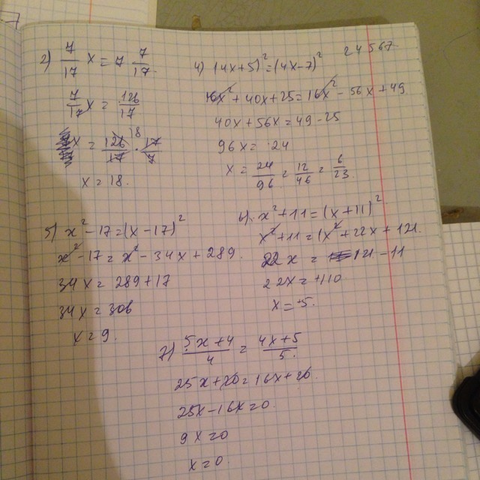 24567
2) 7/17 x = 7 7/17.
7/17 x = 126/17
x = 126/17 · 17/7
18
x = 18.
4) (4x+5)² = (4x-7)²
16x² + 40x + 25 = 16x² - 56x + 49
40x + 56x = 49 - 25
96x = 24
x = 24/96 = 12/46 = 6/23.
5) x² - 17 = (x - 17)²
x² - 17 = x² - 34x + 289.
34x = 289 + 17
34x = 306
x = 9.
6) x² + 11 = (x + 11)²
x² + 11 = (x² + 22x + 121
22x = 121 - 11
22x = +110
x = -5.
7) 5x+4/4 = 4x+5/5.
25x + 20 = 16x + 20
25x - 16x = 0
9x = 0
x = 0.